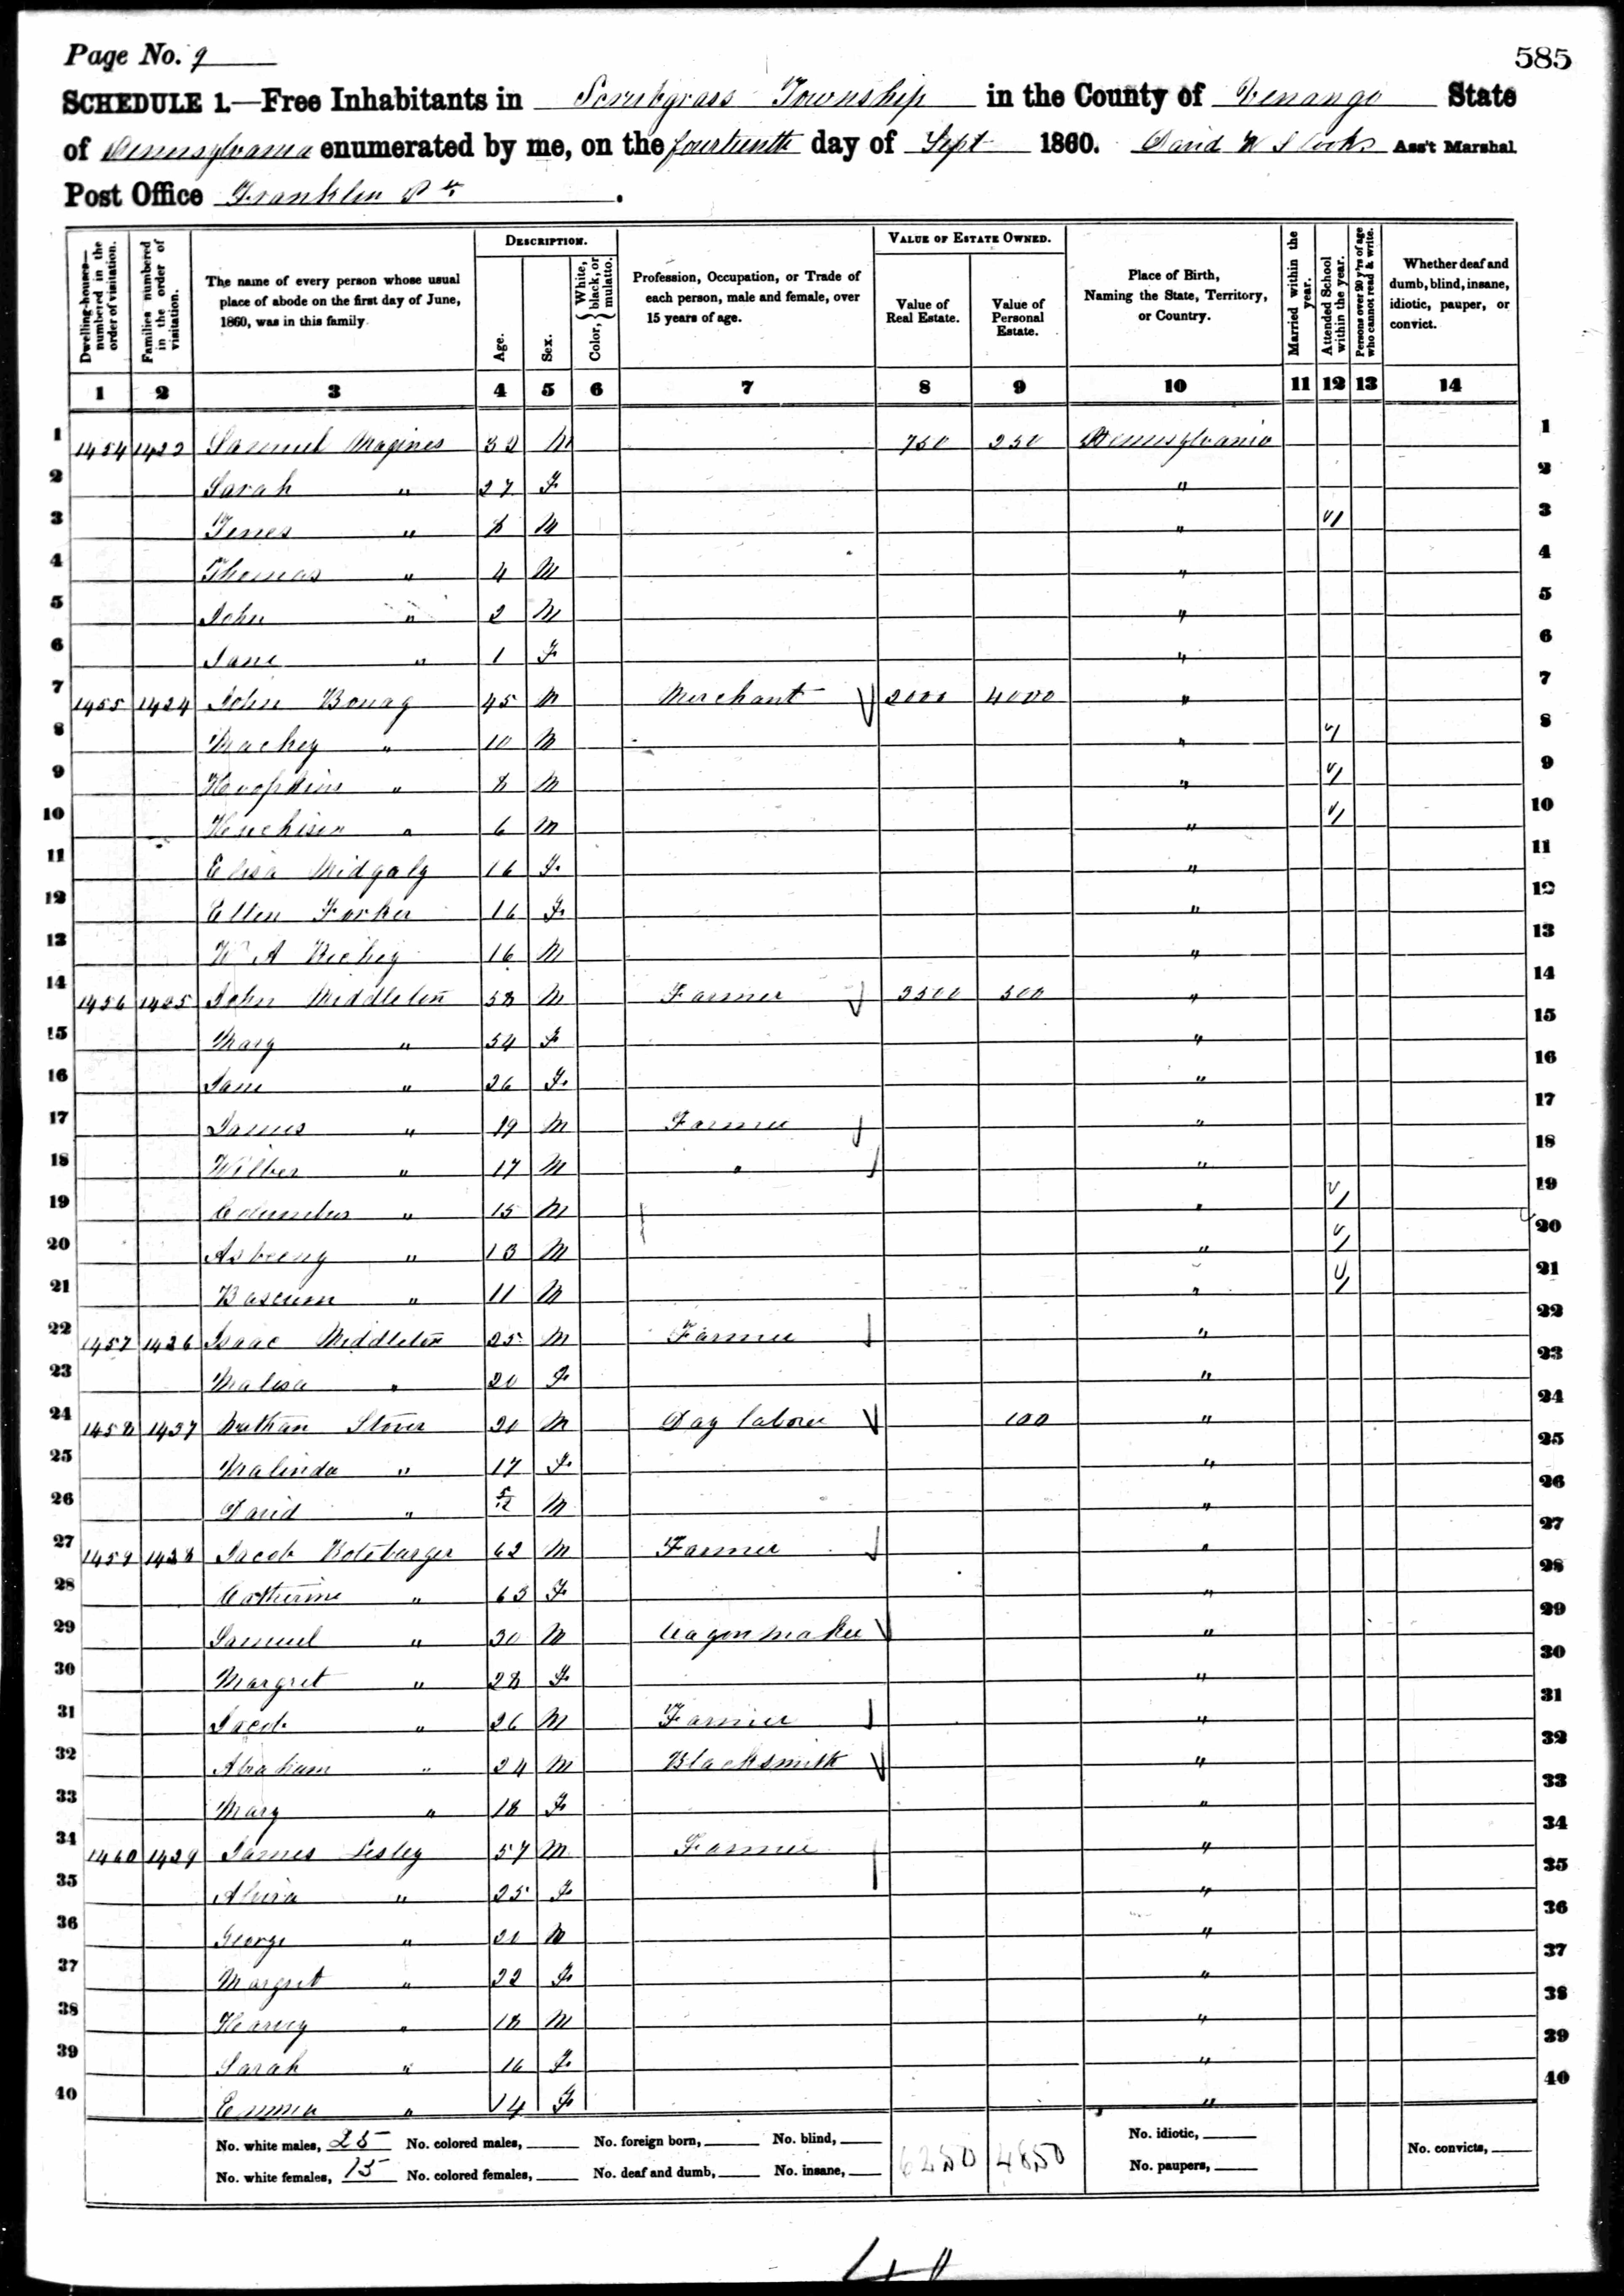 Page No. 9
585
SCHEDULE 1.—Free Inhabitants in Scrubgrass Township in the County of Venango State
of Pennsylvania enumerated by me, on the fourteenth day of Sept 1860. David Ass't Marshal
Post Office Franklin Pa.
DESCRIPTION. VALUE OF ESTATE OWNED.
Dwelling-houses—numbered in the order of visitation.
Families numbered in the order of visitation.
The name of every person whose usual place of abode on the first day of June, 1860, was in this family.
Age.
Sex.
Color, { White, black, or mulatto.
Profession, Occupation, or Trade of each person, male and female, over 15 years of age.
Value of Real Estate.
Value of Personal Estate.
Place of Birth, Naming the State, Territory, or Country.
Married within the year.
Attended School within the year.
Persons over 20 y'rs of age who cannot read & write.
Whether deaf and dumb, blind, insane, idiotic, pauper, or convict.
1 2 3 4 5 6 7 8 9 10 11 12 13 14
1 1454 Samuel M 750 250 Pennsylvania 1
2 Sarah " 27 F " 2
3 " 8 M " / 3
4 Thomas " 4 M " 4
5 John " 2 M " 5
6 Jane " 1 F " 6
7 1455 1424 John 45 M Merchant 2000 4000 " 7
8 " 10 M " / 8
9 " 8 M " / 9
10 " 6 M " / 10
11 Elisa 16 F " 11
12 Ellen 16 F " 12
13 A Richey 16 M " 13
14 1456 1425 John Middleton 58 M Farmer 3500 500 " 14
15 Mary " 54 F " 15
16 Jane " 26 F " 16
17 James " 19 M Farmer " 17
18 Wilber " 17 M " " 18
19 Columbus " 15 M " / 19
20 " 13 M " / 20
21 Bascum " 11 M " / 21
22 1457 1426 Isaac Middleton 25 M Farmer " 22
23 Malisa " 20 F " 23
24 1458 1427 Nathan Stover 21 M Day laborer 100 " 24
25 Malinda " 17 F " 25
26 David " 5/12 M " 26
27 1459 1428 Jacob 62 M Farmer " 27
28 Catherine " 63 F " 28
29 Samuel " 30 M Wagon maker " 29
30 Margret " 28 F " 30
31 Jacob " 26 M Farmer " 31
32 Abraham " 24 M Blacksmith " 32
33 Mary " 18 F " 33
34 1460 1429 James Lesley 57 M Farmer " 34
35 " 25 F " 35
36 George " 21 M " 36
37 Margret " 22 F " 37
38 Harvey " 18 M " 38
39 Sarah " 16 F " 39
40 Emma " 14 F " 40
No. white males, 25 No. colored males, No. foreign born, No. blind, 6250 4850 No. idiotic, No. convicts,
No. white females, 15 No. colored females, No. deaf and dumb, No. insane, No. paupers,